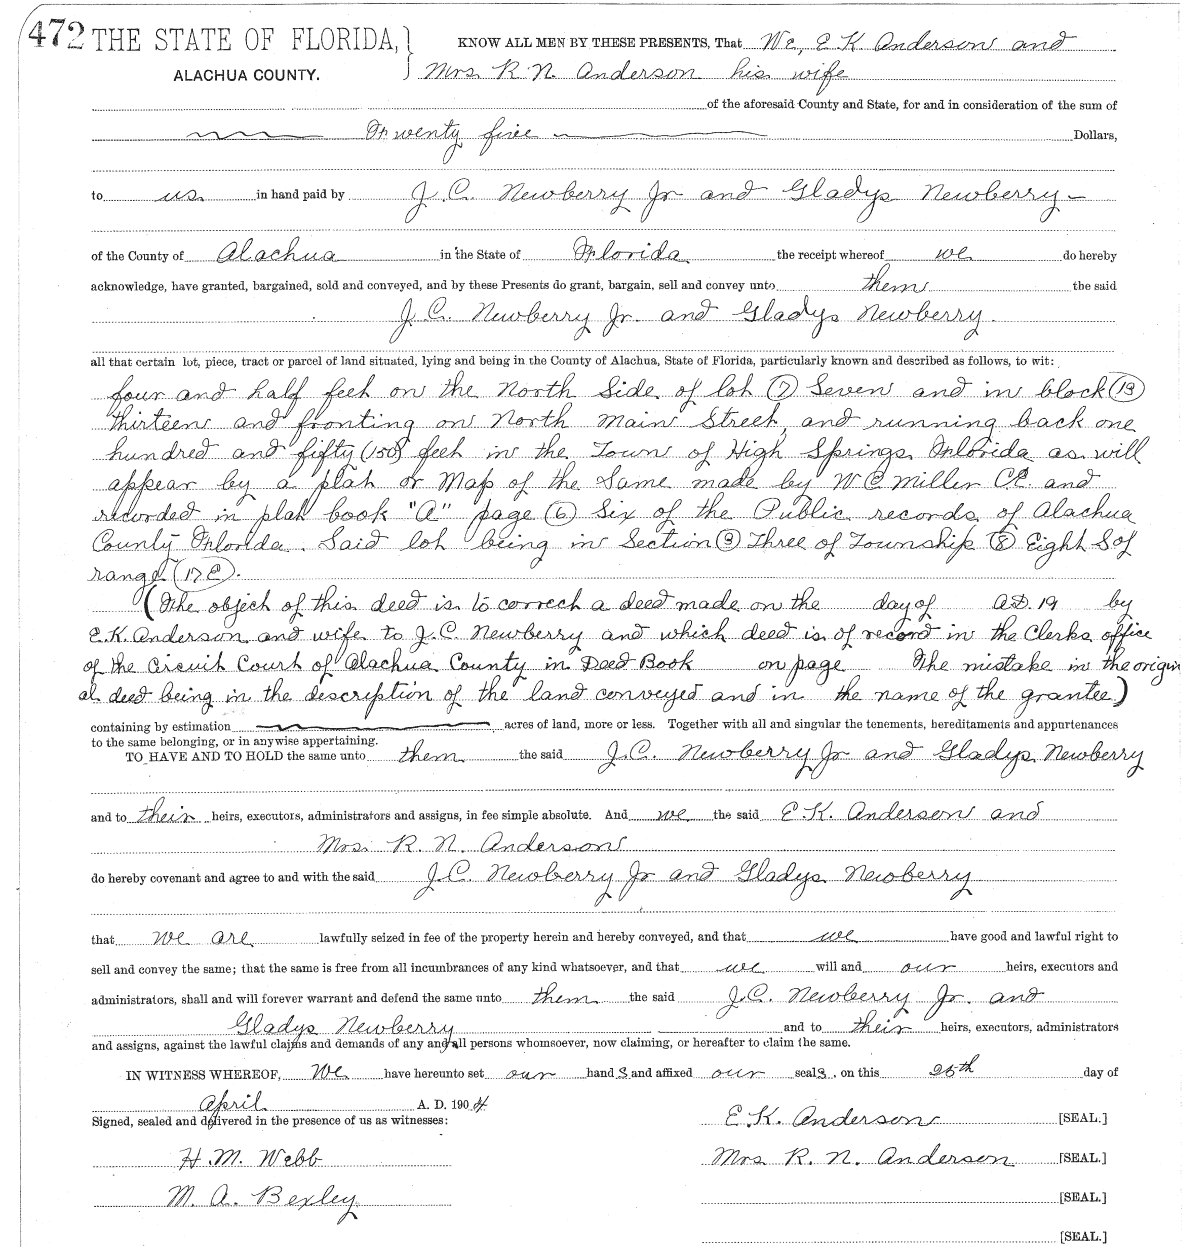 472 THE STATE OF FLORIDA, } KNOW ALL MEN BY THESE PRESENTS, That We, E. K. Anderson and
ALACHUA COUNTY. Mrs R. N. Anderson his wife
of the aforesaid County and State, for and in consideration of the sum of
Twenty five Dollars,
to us in hand paid by J. C. Newberry Jr and Gladys Newberry
of the County of Alachua in the State of Florida the receipt whereof we do hereby
acknowledge, have granted, bargained, sold and conveyed, and by these Presents do grant, bargain, sell and convey unto them the said
J. C. Newberry Jr. and Gladys Newberry.
all that certain lot, piece, tract or parcel of land situated, lying and being in the County of Alachua, State of Florida, particularly known and described as follows, to wit:
four and half feet on the North Side of lot (7) Seven and in block (13)
thirteen and fronting on North Main Street, and running back one
hundred and fifty (150) feet in the Town of High Springs Florida as will
appear by a plat or Map of the Same made by W C Miller C.E. and
recorded in plat book "A" page (6) Six of the Public records of Alachua
County Florida. Said lot being in Section (3) Three of Township (8) Eight S of
range (17 E).
(The object of this deed is to correct a deed made on the day of A.D. 19 by
E. K. Anderson and wife to J. C. Newberry and which deed is of record in the Clerks office
of the Circuit Court of Alachua County in Deed Book on page The mistake in the origin
al deed being in the description of the land conveyed and in the name of the grantee)
containing by estimation acres of land, more or less. Together with all and singular the tenements, hereditaments and appurtenances
to the same belonging, or in anywise appertaining.
TO HAVE AND TO HOLD the same unto them the said J. C. Newberry Jr and Gladys Newberry
and to their heirs, executors, administrators and assigns, in fee simple absolute. And we the said E. K. Anderson and
Mrs. R. N. Anderson
do hereby covenant and agree to and with the said J. C. Newberry Jr and Gladys Newberry
that we are lawfully seized in fee of the property herein and hereby conveyed, and that we have good and lawful right to
sell and convey the same; that the same is free from all incumbrances of any kind whatsoever, and that we will and our heirs, executors and
administrators, shall and will forever warrant and defend the same unto them the said J. C. Newberry Jr. and
Gladys Newberry and to their heirs, executors, administrators
and assigns, against the lawful claims and demands of any and all persons whomsoever, now claiming, or hereafter to claim the same.
IN WITNESS WHEREOF, We have hereunto set our hand s and affixed our seal s. on this day of
April A. D. 190 4
Signed, sealed and delivered in the presence of us as witnesses: E. K. Anderson [SEAL.]
H. M. Webb Mrs R. N. Anderson [SEAL.]
M. A. Bexley [SEAL.]
[SEAL.]